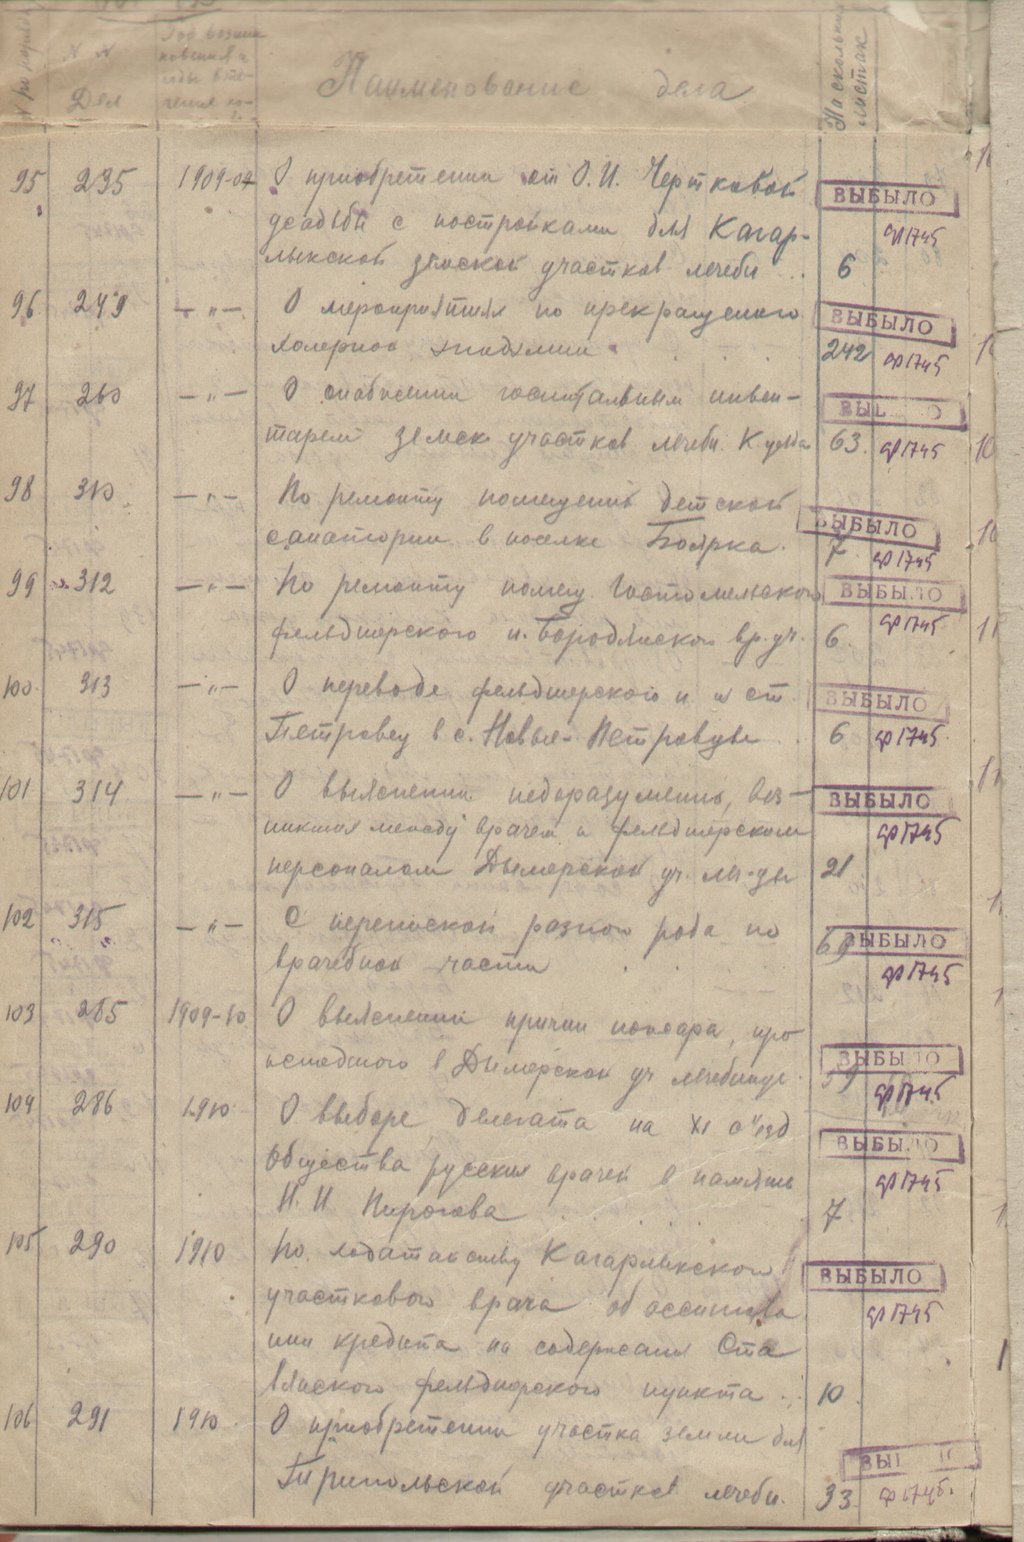 № по порядку
N N Дел
Наименование дела
На скольких листах
95 235 1909-09 О приобретении от О.И. Чертковой ВЫБЫЛО
усадьбы с постройками для Кагар- ф1745
лыкской земской участков лечебн. 6
96 249 — „ — О мероприятиях по прекращению ВЫБЫЛО
холерной эпидемии 242 ф1745
97 260 — „ — О снабжении госпитальным инвен- ВЫБЫЛО
тарем земск участков лечебн. К уезда 63. ф1745
98 310 — „ — По ремонту помещений детской ВЫБЫЛО
санатории в поселке Боярка. 7 ф1745
99 312 — „ — По ремонту помещ. Гостомельского ВЫБЫЛО
фельдшерского п. Бородянского вр. уч. 6. ф1745
100. 313 — „ — О переводе фельдшерского п. из ст. ВЫБЫЛО
Петровец в с. Новые-Петровцы 6 ф1745.
101 314 — „ — О выяснении недоразумений, воз- ВЫБЫЛО
никших между врачем и фельдшерским ф1745
персоналом Дымерской уч. ле-цы 21
102 315 — „ — С перепиской разного рода по 69 ВЫБЫЛО
врачебной части ф1745
103 285 1909-10 О выяснении причин пожара, про
исшедшего в Дымерской уч лечебнице. 59 ВЫБЫЛО
ф1745
104 286 1910 О выборе делегата на XI съезд ВЫБЫЛО
Общества русских врачей в память ф1745
Н. И Пирогова 7
105 290 1910 По ходатайству Кагарлыкского ВЫБЫЛО
участкового врача об ассигнова ф1745
нии кредита на содержания Ста
влиского фельдшерского пункта 10
106 291 1910 О приобретении участка земли для
Трипольской участков лечебн. 33 ВЫБЫЛО
ф1745.